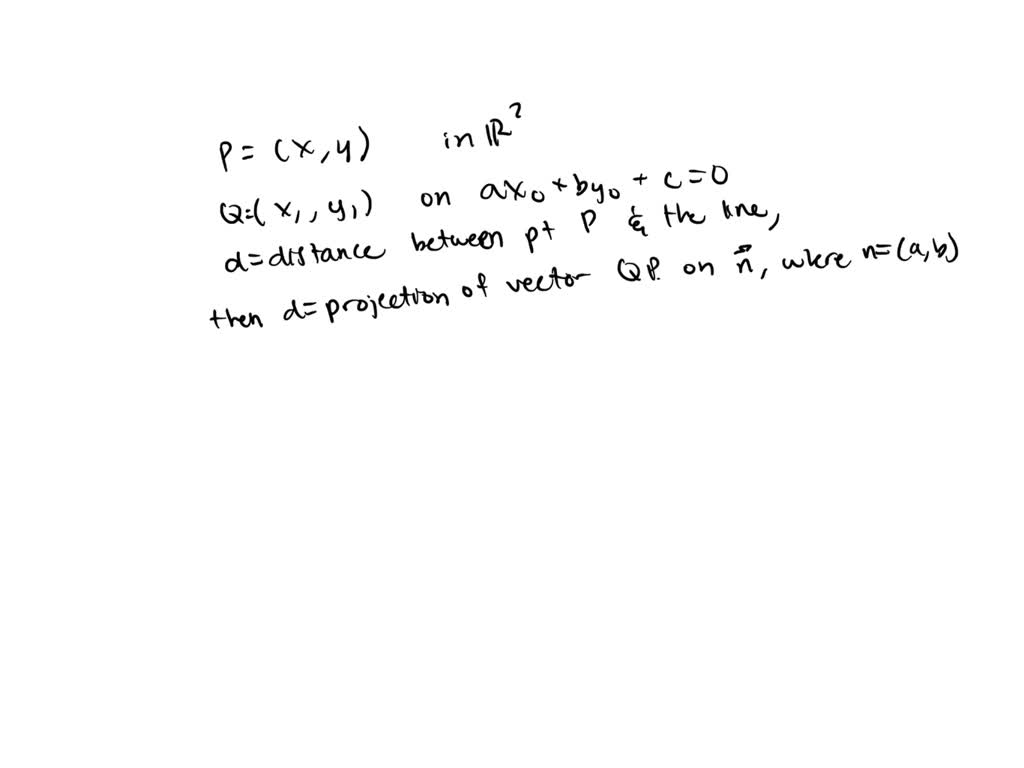 P = (x, y) in ℝ²
Q = (x₁, y₁) on ax₀ + by₀ + c = 0
d = distance between pt P & the line,
then d = projection of vector QP on n⃗, where n = (a, b)